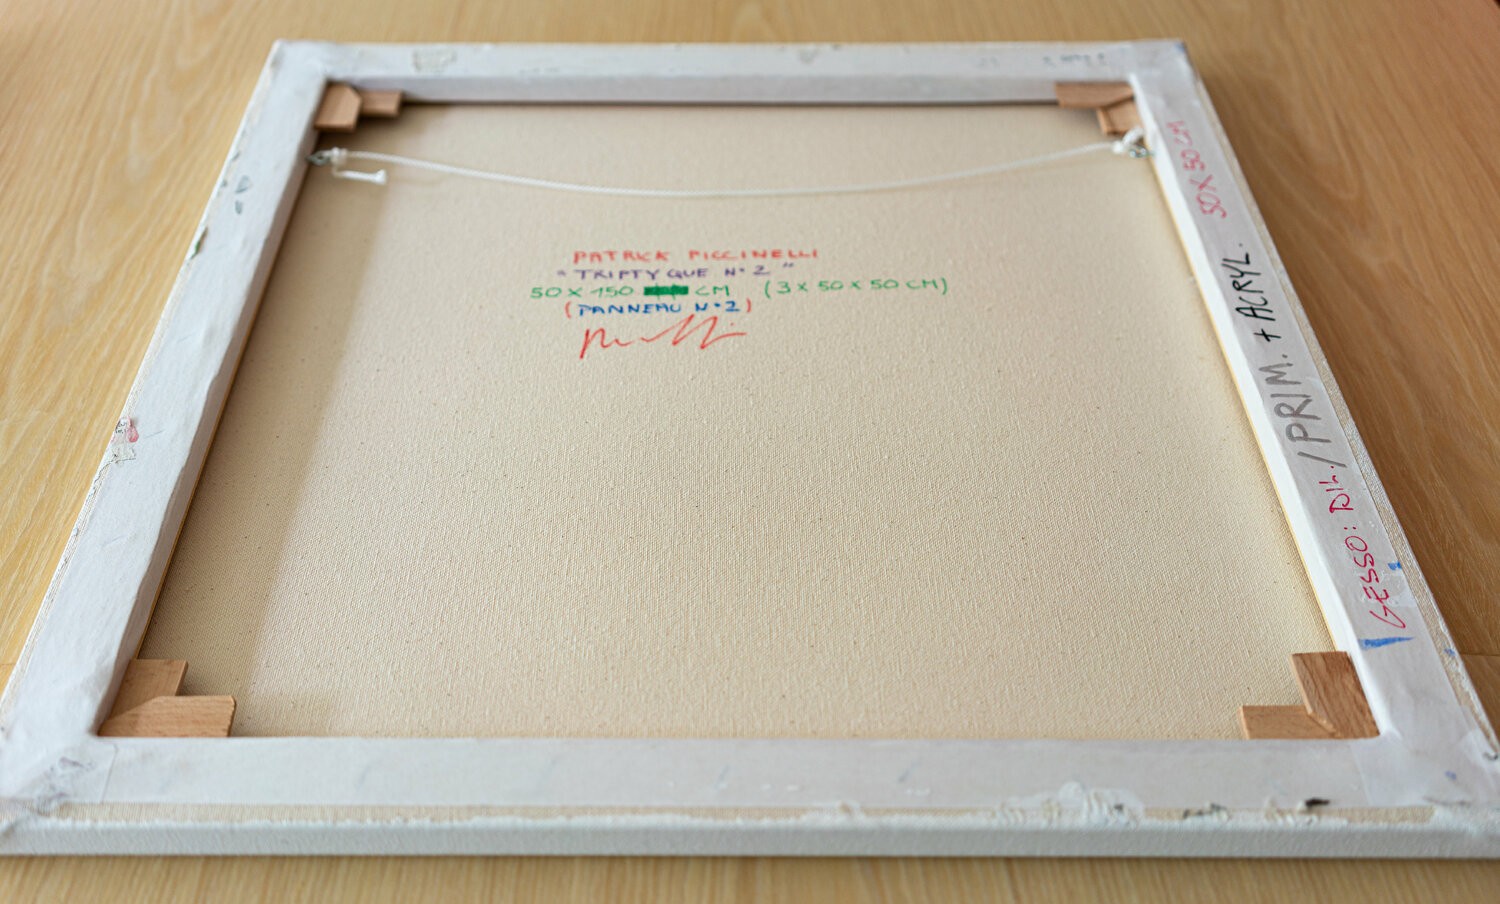 PATRICK PICCINELLI
"TRIPTYQUE N°2"
50 X 150 CM (3 X 50 X 50 CM)
(PANNEAU N°2)
GESSO: DIL. / PRIM. + ACRYL. 50X50 CM